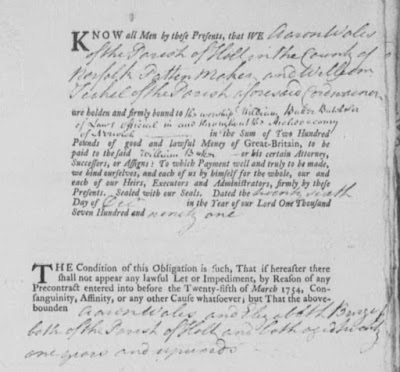 KNOW all Men by these Presents, that WE Aaron Wales
of the Parish of Holt in the County of
Norfolk Patten Maker and William
of the Parish aforesaid Cordwainer
are holden and firmly bound to the worship William Baker Batchelor
of Laws Official in and throughout the Archdeaconry
of Norwich in the Sum of Two Hundred
Pounds of good and lawful Money of Great-Britain, to be
paid to the said William Baker or his certain Attorney,
Successors, or Assigns: To which Payment well and truly to be made,
we bind ourselves, and each of us by himself for the whole, our and
each of our Heirs, Executors and Administrators, firmly by these
Presents. Sealed with our Seals. Dated the twenty sixth
Day of in the Year of our Lord One Thousand
Seven Hundred and ninety one
THE Condition of this Obligation is such, That if hereafter there
shall not appear any lawful Let or Impediment, by Reason of any
Precontract entered into before the Twenty-fifth of March 1754, Con-
sanguinity, Affinity, or any other Cause whatsoever; but That the above-
bounden Aaron Wales and Elizabeth
both of the Parish of Holt and both aged twenty
one years and upwards